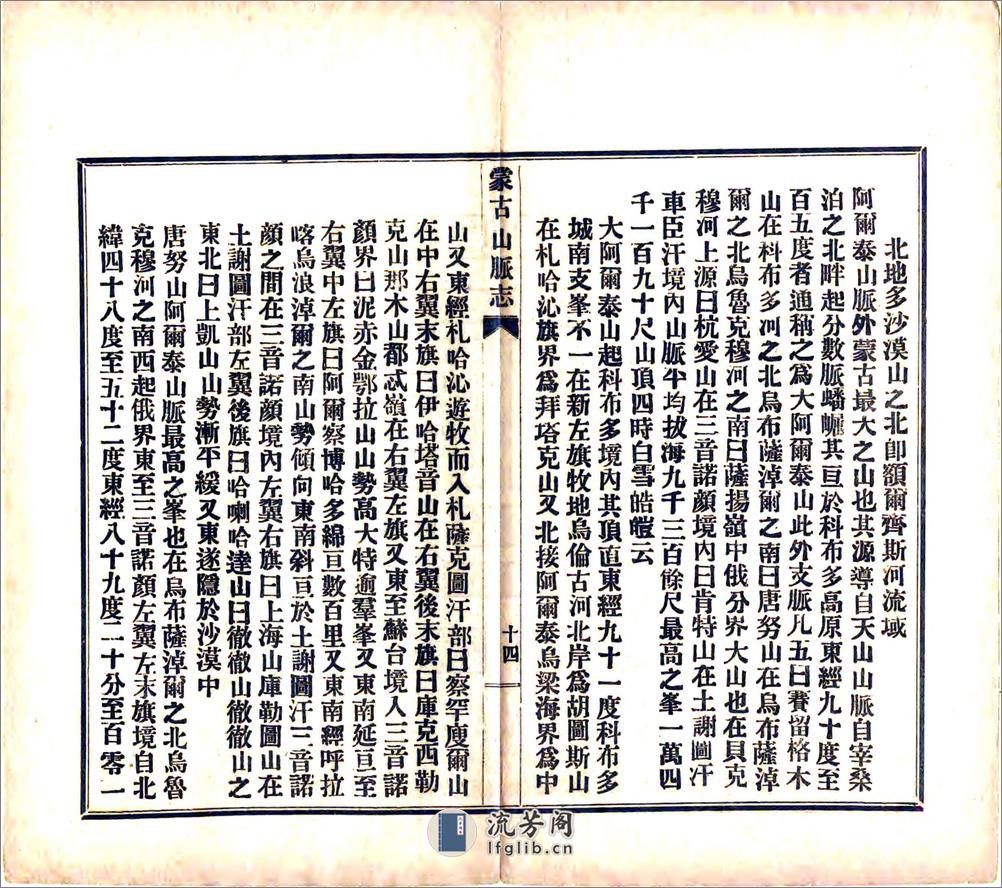 北地多沙漠山之北卽額爾齊斯河流域
阿爾泰山脈外蒙古最大之山也其源導自天山山脈自宰桑
泊之北畔起分數脈蟠崛其亘於科布多高原東經九十度至
百五度者通稱之爲大阿爾泰山此外支脈凡五曰賽留格木
山在科布多河之北烏布薩淖爾之南曰唐努山在烏布薩淖
爾之北烏魯克穆河之南曰薩揚嶺中俄分界大山也在貝克
穆河上源曰杭愛山在三音諾顏境內曰肯特山在土謝圖汗
車臣汗境內山脈平均拔海九千三百餘尺最高之峯一萬四
千一百九十尺山頂四時白雪皓皚云
大阿爾泰山起科布多境內其頂直東經九十一度科布多
城南支峯不一在新左旗牧地烏倫古河北岸爲胡圖斯山
在札哈沁旗界爲拜塔克山又北接阿爾泰烏梁海界爲中
蒙古山脈志
十四
山又東經札哈沁遊牧而入札薩克圖汗部曰察罕廋爾山
在中右翼末旗曰伊哈塔音山在右翼後末旗曰庫克西勒
克山那木山都忒嶺在右翼左旗又東至蘇台境入三音諾
顏界曰泥赤金鄂拉山山勢高大特逾羣峯又東南延亘至
右翼中左旗曰阿爾察博哈多綿亘數百里又東南經呼拉
喀烏浪淖爾之南山勢傾向東南斜亘於土謝圖汗三音諾
顏之間在三音諾顏境內左翼右旗曰上海山庫勒圖山在
土謝圖汗部左翼後旗曰哈喇哈達山曰徹徹山徹徹山之
東北曰上凱山山勢漸平緩又東遂隱於沙漠中
唐努山阿爾泰山脈最高之峯也在烏布薩淖爾之北烏魯
克穆河之南西起俄界東至三音諾顏左翼左末旗境自北
緯四十八度至五十二度東經八十九度二十分至百零一
流芳阁
lfglib.cn